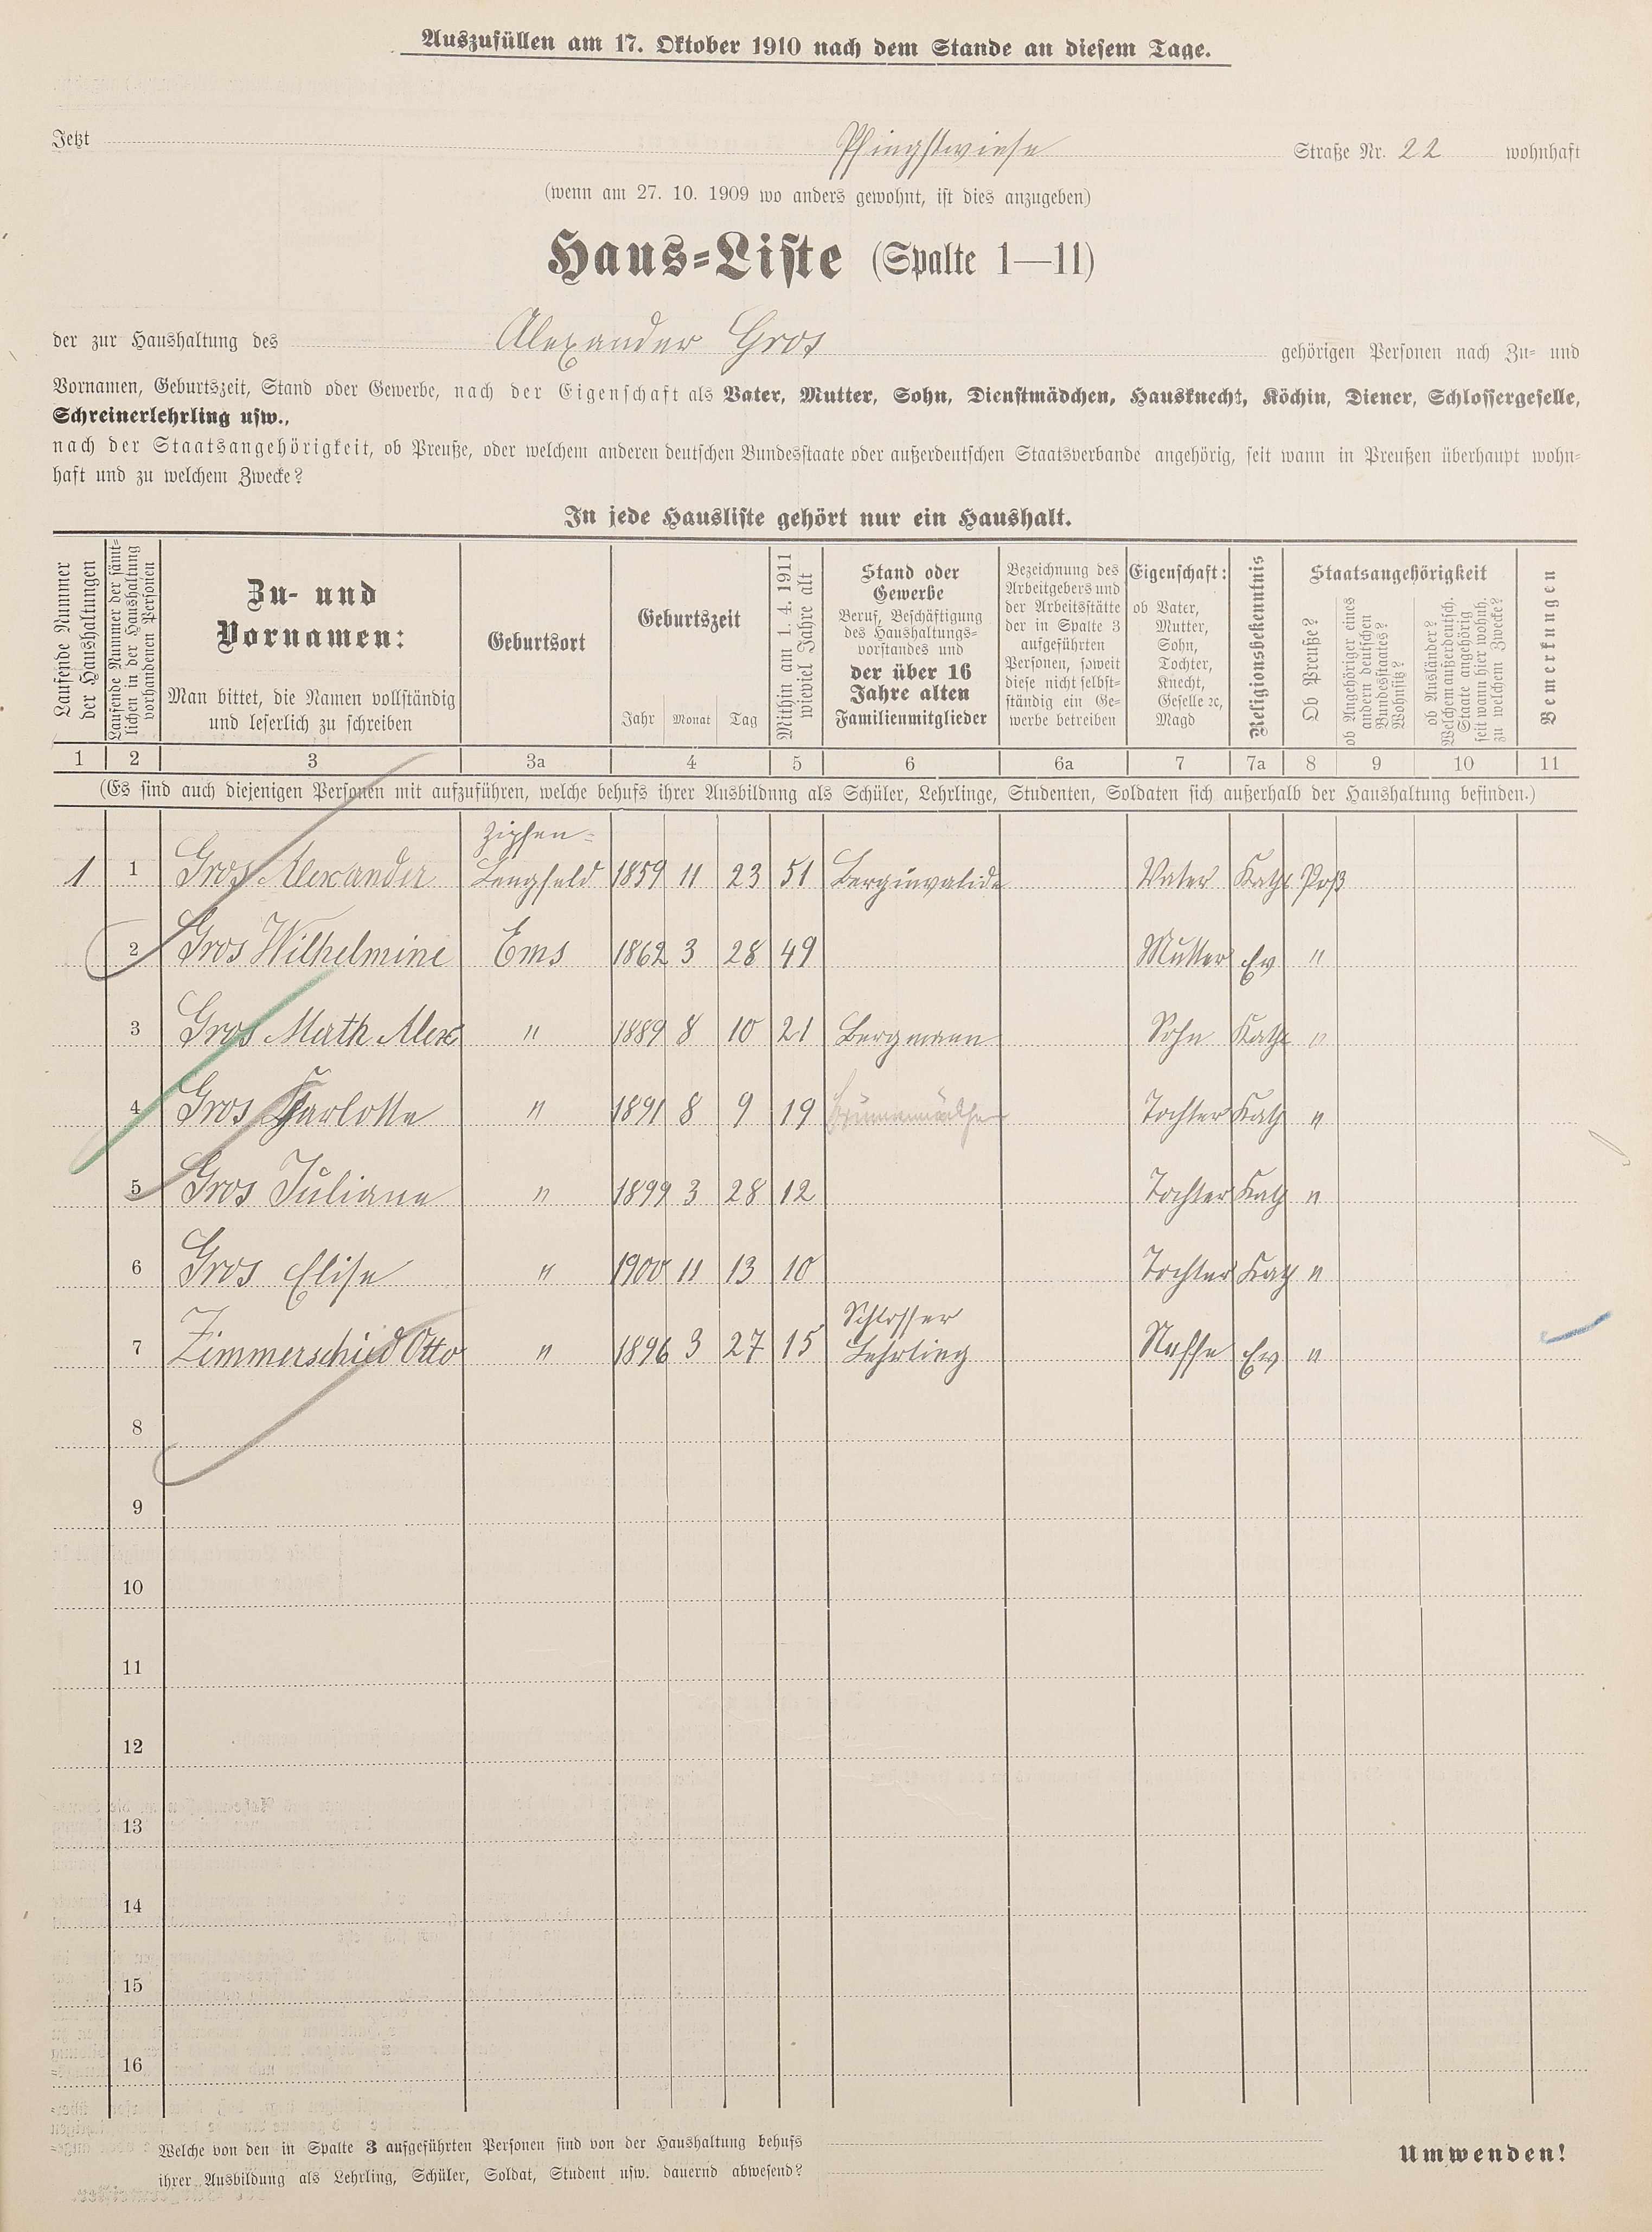 Auszufüllen am 17. Oktober 1910 nach dem Stande an diesem Tage.
Jetzt Pfingstwiese Straße Nr. 22 wohnhaft
(wenn am 27. 10. 1909 wo anders gewohnt, ist dies anzugeben)
Haus=Liste (Spalte 1—11)
der zur Haushaltung des Alexander Gros gehörigen Personen nach Zu= und
Vornamen, Geburtszeit, Stand oder Gewerbe, nach der Eigenschaft als Vater, Mutter, Sohn, Dienstmädchen, Hausknecht, Köchin, Diener, Schlossergeselle,
Schreinerlehrling usw.,
nach der Staatsangehörigkeit, ob Preuße, oder welchem anderen deutschen Bundesstaate oder außerdeutschen Staatsverbande angehörig, seit wann in Preußen überhaupt wohn=
haft und zu welchem Zwecke?
In jede Hausliste gehört nur ein Haushalt.
Laufende Nummer
der Haushaltungen
Laufende Nummer der sämt=
lichen in der Haushaltung
vorhandenen Personen
Zu- und
Vornamen:
Man bittet, die Namen vollständig
und leserlich zu schreiben
Geburtsort
Geburtszeit
Jahr Monat Tag
Mithin am 1. 4. 1911
wieviel Jahre alt
Stand oder
Gewerbe
Beruf, Beschäftigung
des Haushaltungs=
vorstandes und
der über 16
Jahre alten
Familienmitglieder
Bezeichnung des
Arbeitgebers und
der Arbeitsstätte
der in Spalte 3
aufgeführten
Personen, soweit
diese nicht selbst=
ständig ein Ge=
werbe betreiben
Eigenschaft:
ob Vater,
Mutter,
Sohn,
Tochter,
Knecht,
Geselle ꝛc,
Magd
Religionsbekenntnis
Staatsangehörigkeit
Ob Preuße?
ob Angehöriger eines
andern deutschen
Bundesstaates?
Wohnsitz?
ob Ausländer?
Welchem außerdeutsch.
Staate angehörig
seit wann hier wohnh.
zu welchem Zwecke?
Bemerkungen
1 2 3 3a 4 5 6 6a 7 7a 8 9 10 11
(Es sind auch diejenigen Personen mit aufzuführen, welche behufs ihrer Ausbildung als Schüler, Lehrlinge, Studenten, Soldaten sich außerhalb der Haushaltung befinden.)
Zipfen=
1 1 Gros Alexander Lengfeld 1859 11 23 51 Berginvalide Vater Kath
2 Gros Wilhelmine Ems 1862 3 28 49 Mutter Ev "
3 Gros Math Alex " 1889 8 10 21 Bergmann Sohn Kath "
4 Gros Karlotte " 1891 8 9 19 Tochter Kath "
5 Gros Juliane " 1899 3 28 12 Tochter Kath "
6 Gros Elise " 1900 11 13 10 Tochter Kath "
Schlosser
7 Zimmerschied Otto " 1896 3 27 15 Lehrling Neffe Ev "
8
9
10
11
12
13
14
15
16
Welche von den in Spalte 3 aufgeführten Personen sind von der Haushaltung behufs
ihrer Ausbildung als Lehrling, Schüler, Soldat, Student usw. dauernd abwesend?
Umwenden!